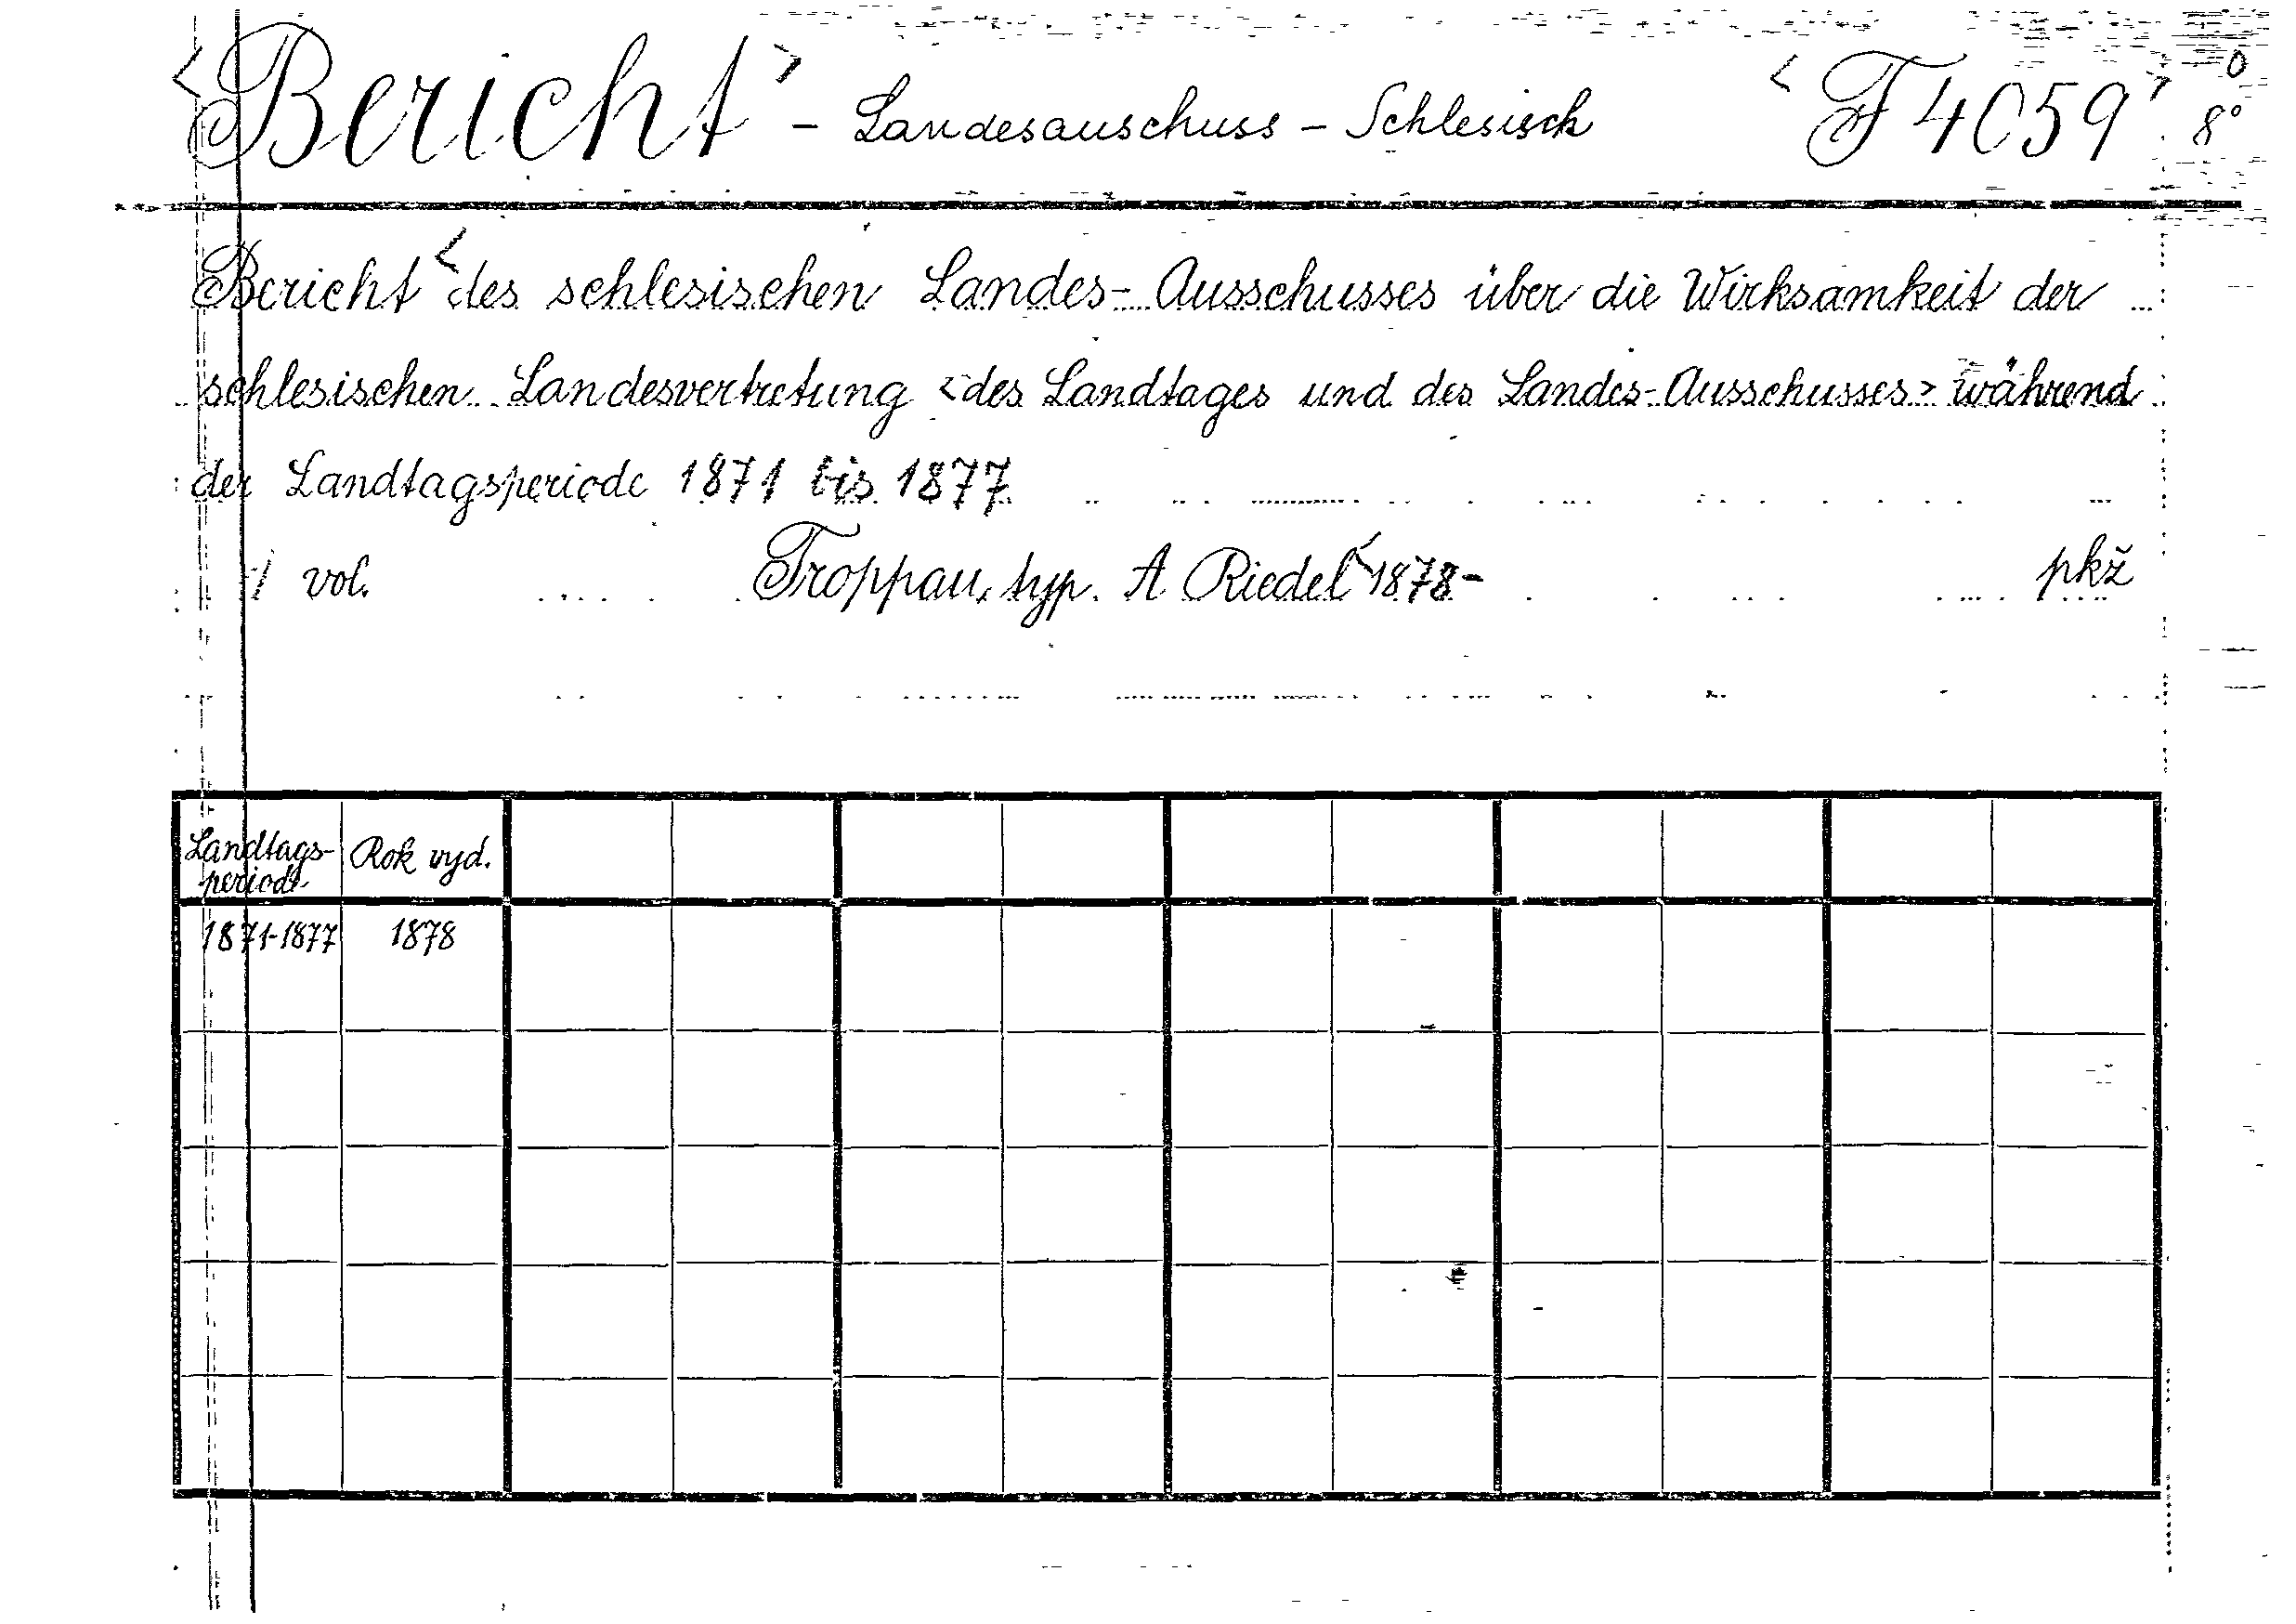 <Bericht> - Landesauschuss - Schlesisch <F 4059> 8°
Bericht <des schlesischen Landes-Ausschusses über die Wirksamkeit der
schlesischen Landesvertretung <des Landtages und des Landes-Ausschusses> während
der Landtagsperiode 1871 bis 1877
1 vol. Troppau, typ. A Riedel <1878- pkž
Landtags-periode Rok vyd.
1871-1877 1878